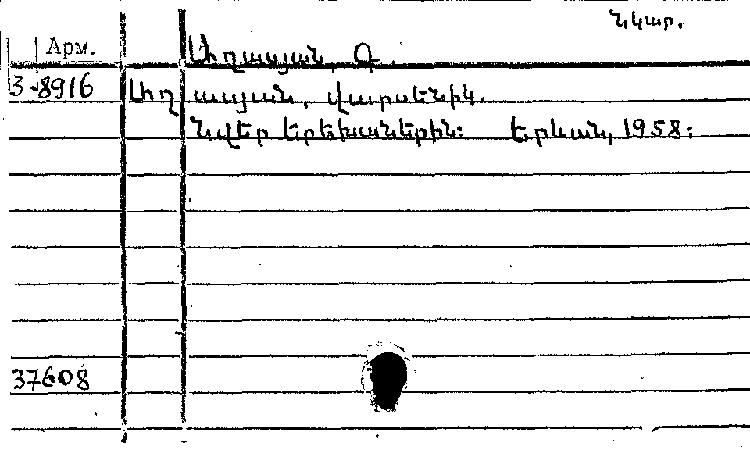 նկար.
Арм.
Աղասյան, Գ.
3-8916
Աղասյան, Վարսենիկ.
Նվեր երեխաներին: Երևան, 1958:
37608